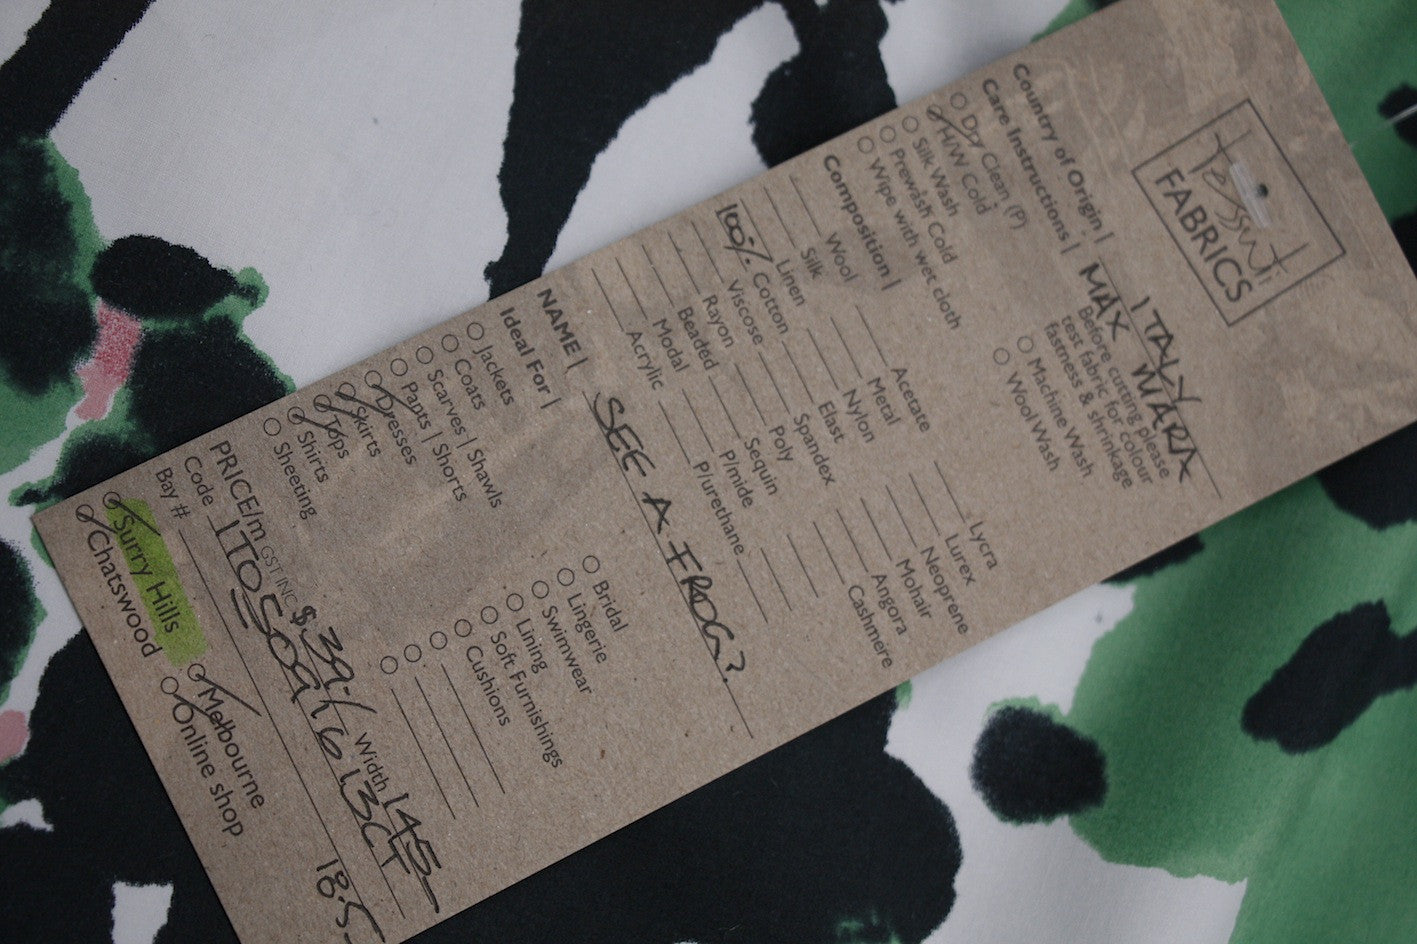 tessuti
FABRICS
Country of Origin | ITALY
MAX MARA
Care Instructions | Before cutting please
test fabric for colour
fastness & shrinkage
Dry Clean (P)
H/W Cold
Silk Wash
Prewash Cold
Wipe with wet cloth
Machine Wash
Wool Wash
Composition |
Wool
Silk
Linen
100% Cotton
Viscose
Rayon
Beaded
Modal
Acrylic
Acetate
Metal
Nylon
Elast
Spandex
Poly
Sequin
P/mide
P/urethane
Lycra
Lurex
Neoprene
Mohair
Angora
Cashmere
NAME | SEE A FROG?
Ideal For |
Jackets
Coats
Scarves | Shawls
Pants | Shorts
Dresses
Skirts
Tops
Shirts
Sheeting
Bridal
Lingerie
Swimwear
Lining
Soft Furnishings
Cushions
PRICE/m GST INC $39./ Width 145
Code
Bay # 18.5
Surry Hills
Chatswood
Melbourne
Online shop